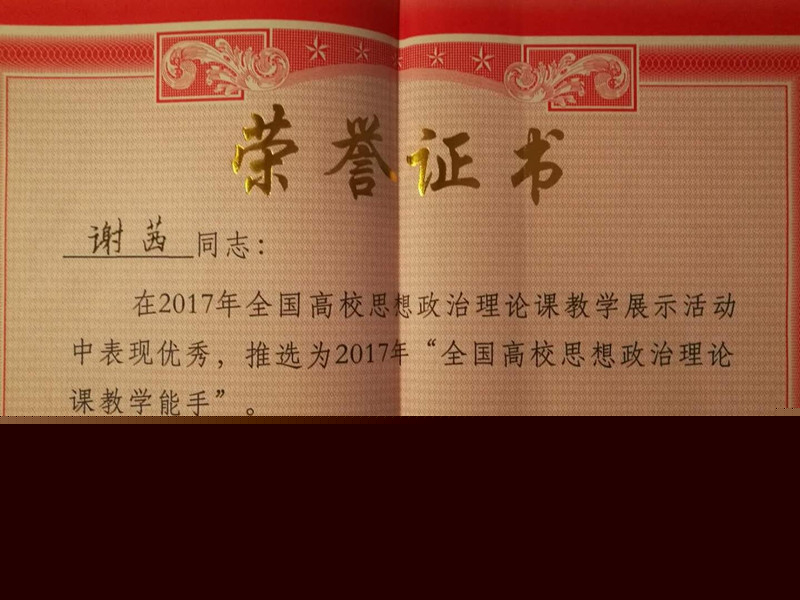 荣誉证书
谢茜同志：
在2017年全国高校思想政治理论课教学展示活动
中表现优秀，推选为2017年“全国高校思想政治理论
课教学能手”。